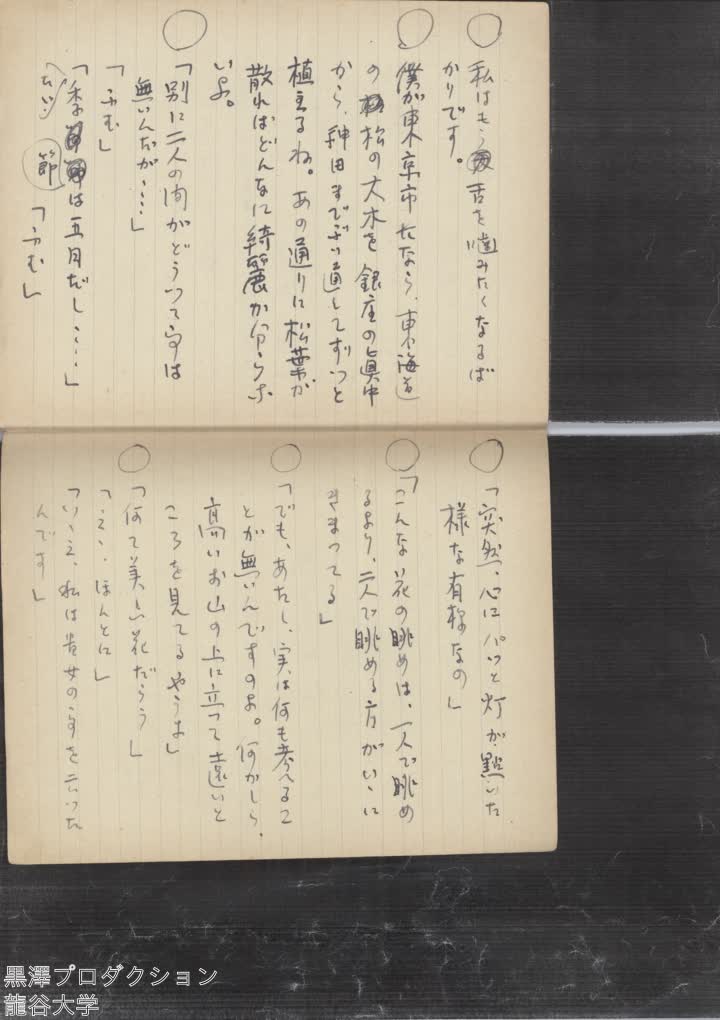 ○
私はもう舌を噛みたくなるば
かりです。
○
僕が東京市長なら、東海道
の松の大木を銀座の眞中
から、神田までぶい通してずつと
植えるね。あの通りに松葉が
散ればどんなに綺麗か分らな
いよ。
○
「別に二人の間がどうつて事は
無いんだが、、、、」
「ふむ」
「季節は五月だし、、、、」
「ふむ」
○
「突然、心にパッと灯が點いた
様な有様なの」
○
「こんな花の眺めは、一人で眺め
るより、二人で眺める方がいゝに
きまつてる」
○
「でも、あたし、実は何も考へるこ
とが無いんですのよ。何かしら、
高いお山の上に立つて遠いと
ころを見てるやうよ」
○
「何て美しい花だらう」
「えゝ、ほんとに」
「いゝえ、私は貴女の事を云つた
んです」
黒澤プロダクション
龍谷大学